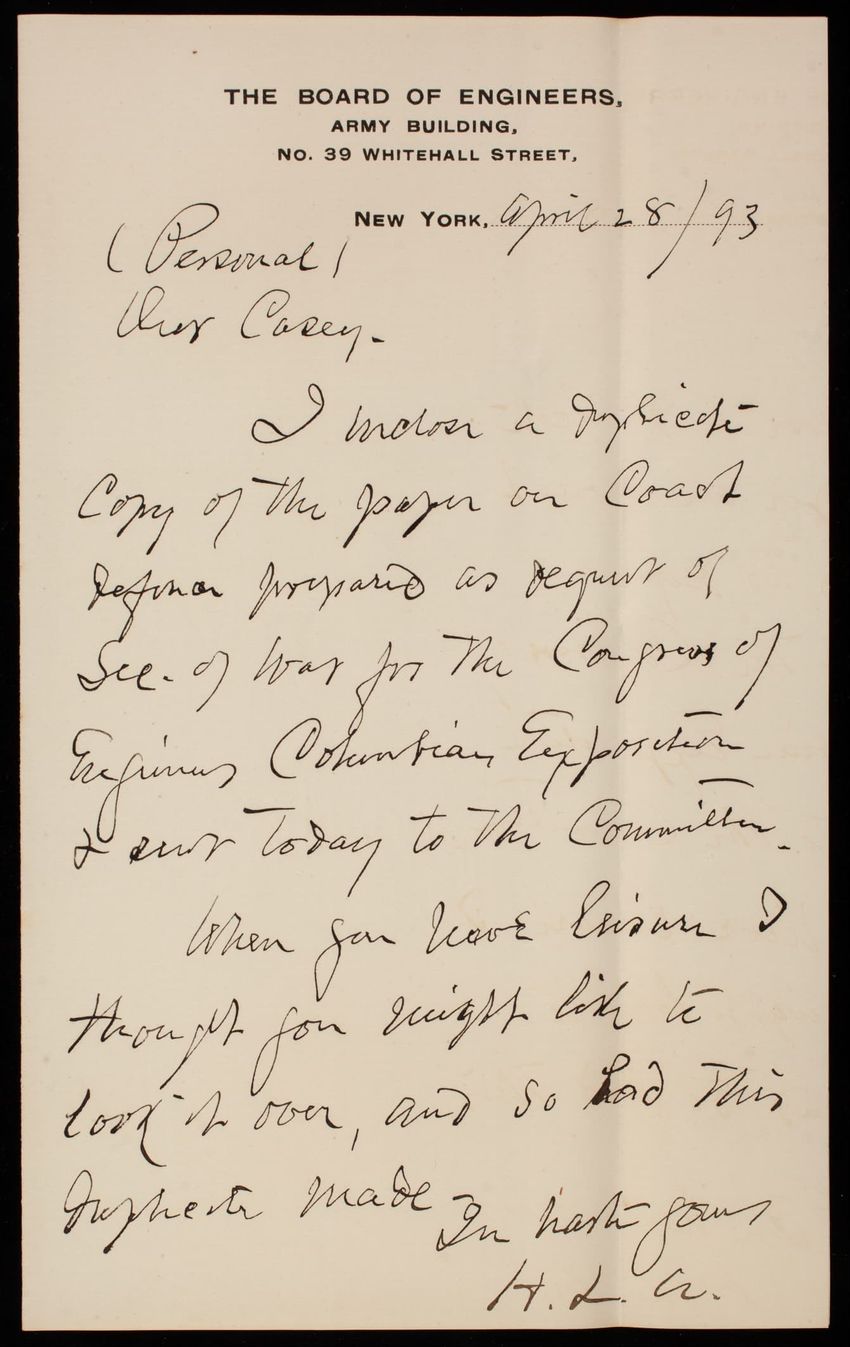 THE BOARD OF ENGINEERS,
ARMY BUILDING,
NO. 39 WHITEHALL STREET,
NEW YORK, April 28/93
(Personal)
Dear Casey.
I inclose a duplicate
Copy of the paper on Coast
defence prepared as request of
Sec. of War for the Congress of
Engineers Columbian Exposition
& sent today to the Committee.
When you have leisure I
thought you might like to
look it over, and so had this
duplicate made
In haste yours
H. L. A.